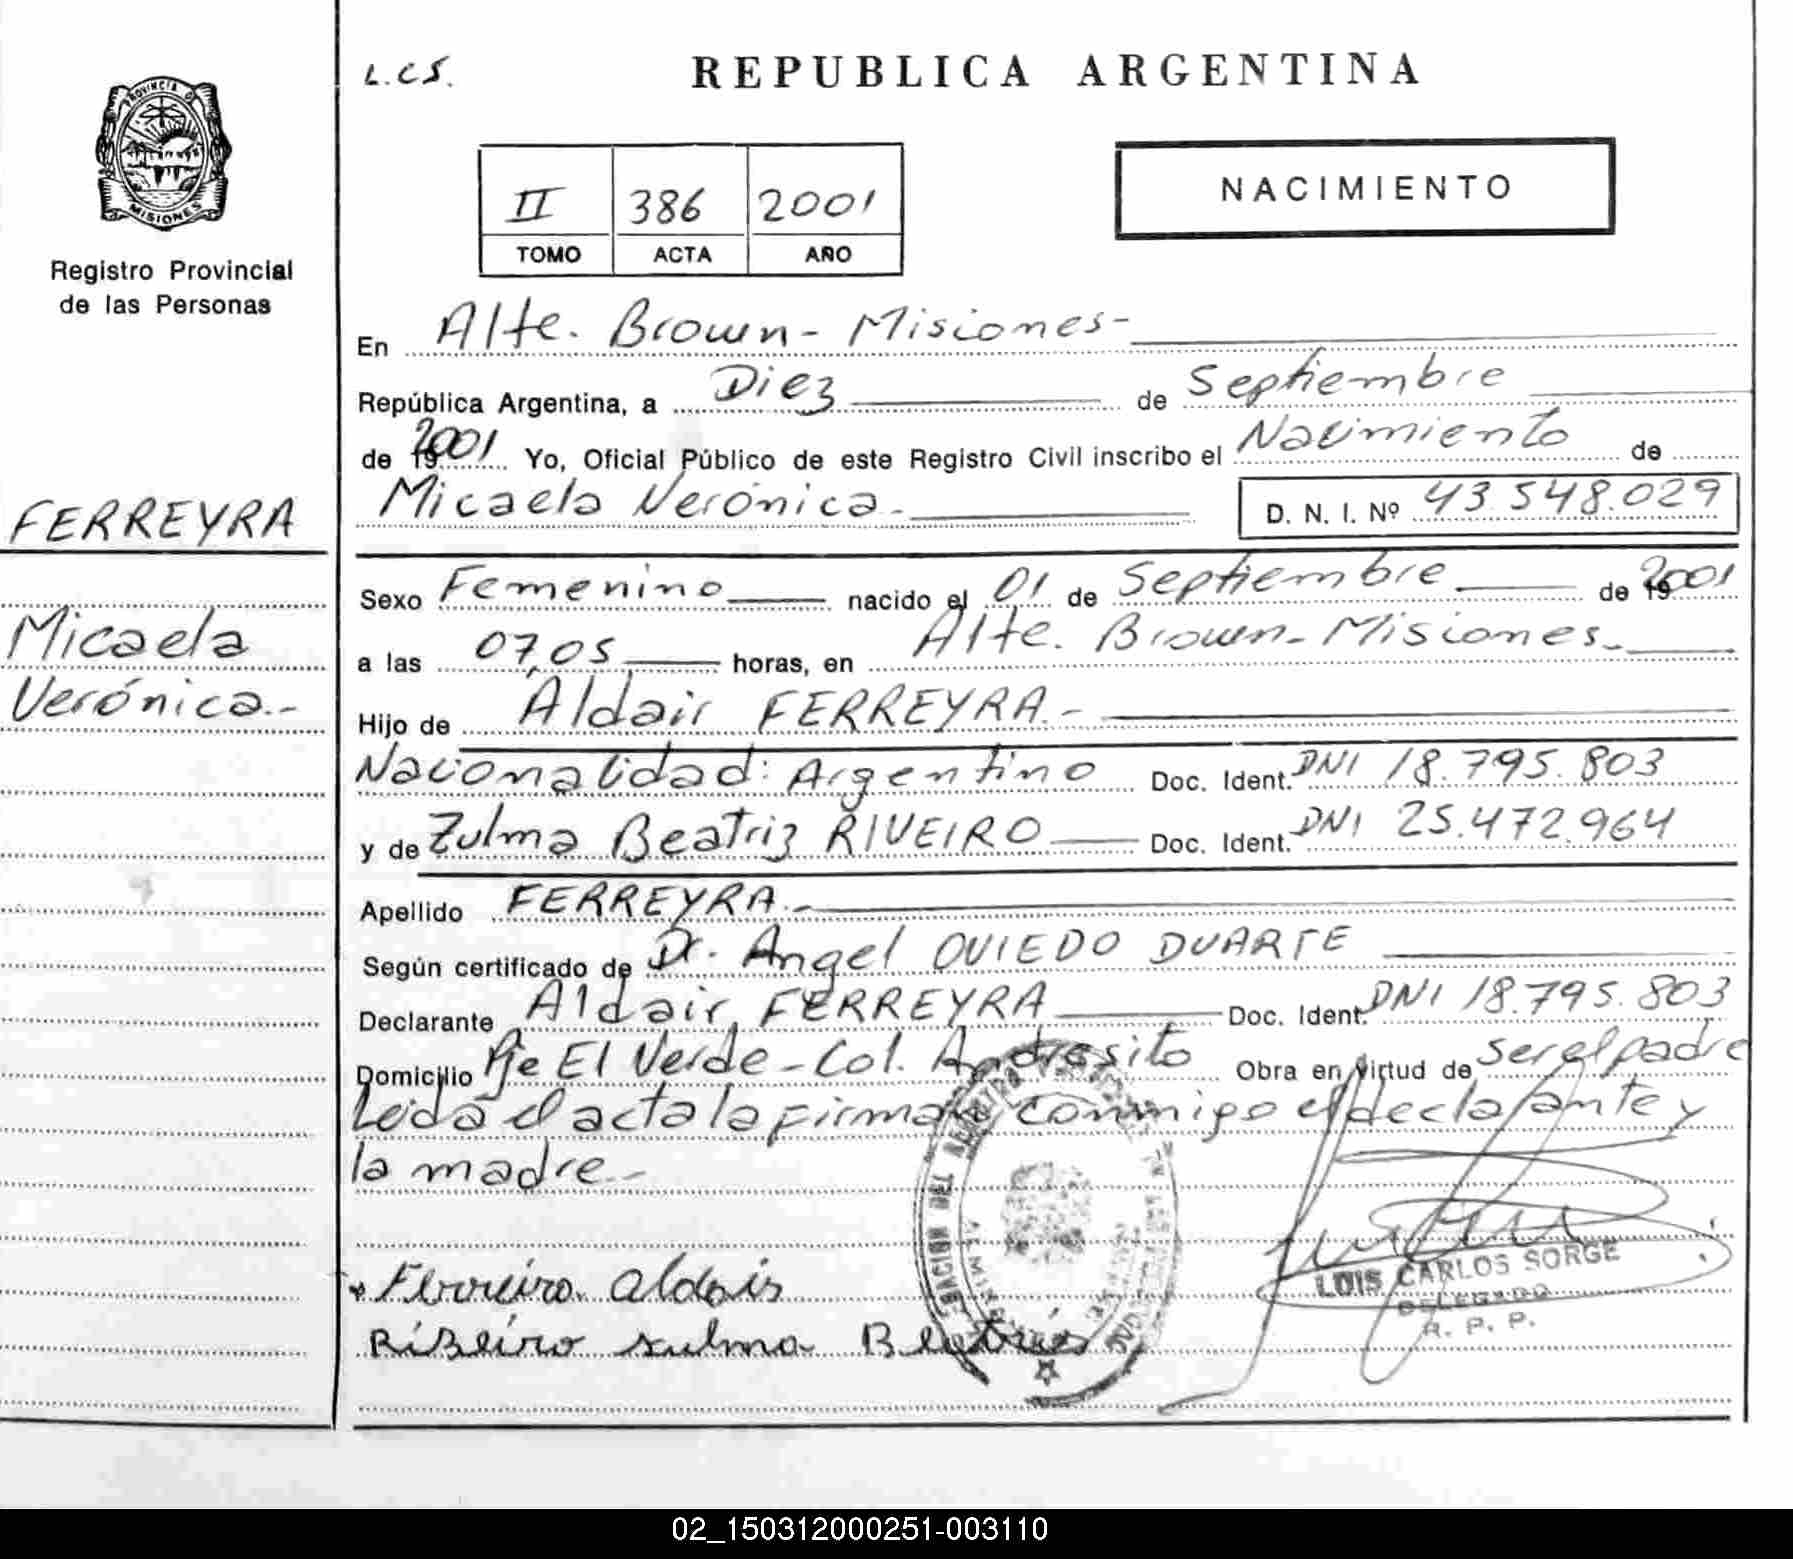 PROVINCIA D
MISIONES
Registro Provincial
de las Personas
FERREYRA
Micaela
Verónica.-
L.C.S.
REPUBLICA ARGENTINA
II 386 2001
TOMO ACTA AÑO
NACIMIENTO
En Alte. Brown - Misiones -
República Argentina, a Diez de Septiembre
de 2001 Yo, Oficial Público de este Registro Civil inscribo el Nacimiento de
Micaela Verónica.- D. N. I. Nº 43.548.029
Sexo Femenino nacido el 01 de Septiembre de 2001
a las 07,05 horas, en Alte. Brown - Misiones.-
Hijo de Aldair FERREYRA.-
Nacionalidad: Argentino Doc. Ident. DNI 18.795.803
y de Zulma Beatriz RIVEIRO Doc. Ident. DNI 25.472.964
Apellido FERREYRA.-
Según certificado de Dr. Angel OVIEDO DUARTE
Declarante Aldair FERREYRA Doc. Ident. DNI 18.795.803
Domicilio Pje El Verde - Col. Andresito Obra en virtud de ser el padre
Leida el acta la firman conmigo el declarante y
la madre.-
aldair
Ribeiro sulma
LUIS CARLOS SORGE
DELEGADO
R. P. P.
02_150312000251-003110